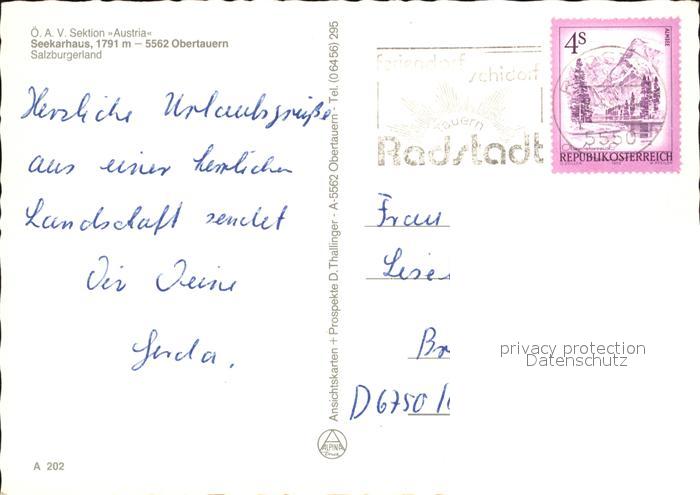 Ö. A. V. Sektion »Austria«
Seekarhaus, 1791 m – 5562 Obertauern
Salzburgerland
Herzliche Urlaubsgrüße
aus einer herrlichen
Landschaft sendet
Dir Deine
Gerda.
A 202
Ansichtskarten + Prospekte D. Thallinger - A-5562 Obertauern - Tel. (0 64 56) 295
ALPINA
Druck
feriendorf
schidorf
tauern
Radstadt
4S
ALMSEE
REPUBLIK ÖSTERREICH
5550
Frau
Lise
Br
D 6750
privacy protection
Datenschutz